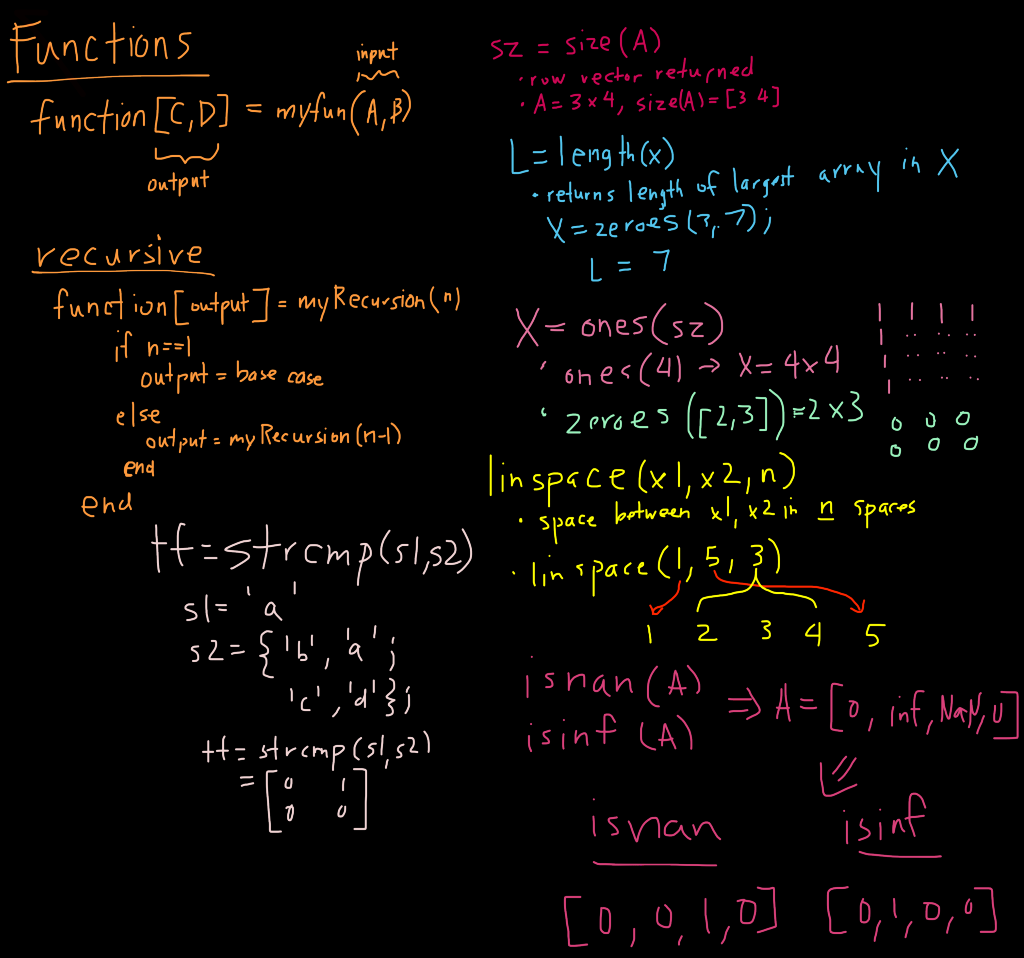 Functions
input
function[C,D] = myfun(A,B)
output
recursive
function[output] = myRecursion(n)
if n==1
output = base case
else
output = myRecursion(n-1)
end
end
tf=strcmp(s1,s2)
s1= 'a'
s2={'b', 'a';
'c','d'};
tf=strcmp(s1,s2)
=[0 1
0 0]
sz = size(A)
•row vector returned
•A=3x4, size(A)=[3 4]
L=length(x)
•returns length of largest array in X
X=zeroes(3,7);
L = 7
X=ones(sz)
' ones(4) → X=4x4
1 1 1 1
1 .. .. ..
1 .. .. ..
1 .. .. ..
' zeroes([2,3])=2x3
0 0 0
0 0 0
linspace(x1,x2,n)
• space between x1,x2 in n spaces
• linspace(1,5,3)
1 2 3 4 5
isnan(A)
isinf(A)
⇒ A=[0, inf, NaN, 0]
isnan isinf
[0,0,1,0] [0,1,0,0]